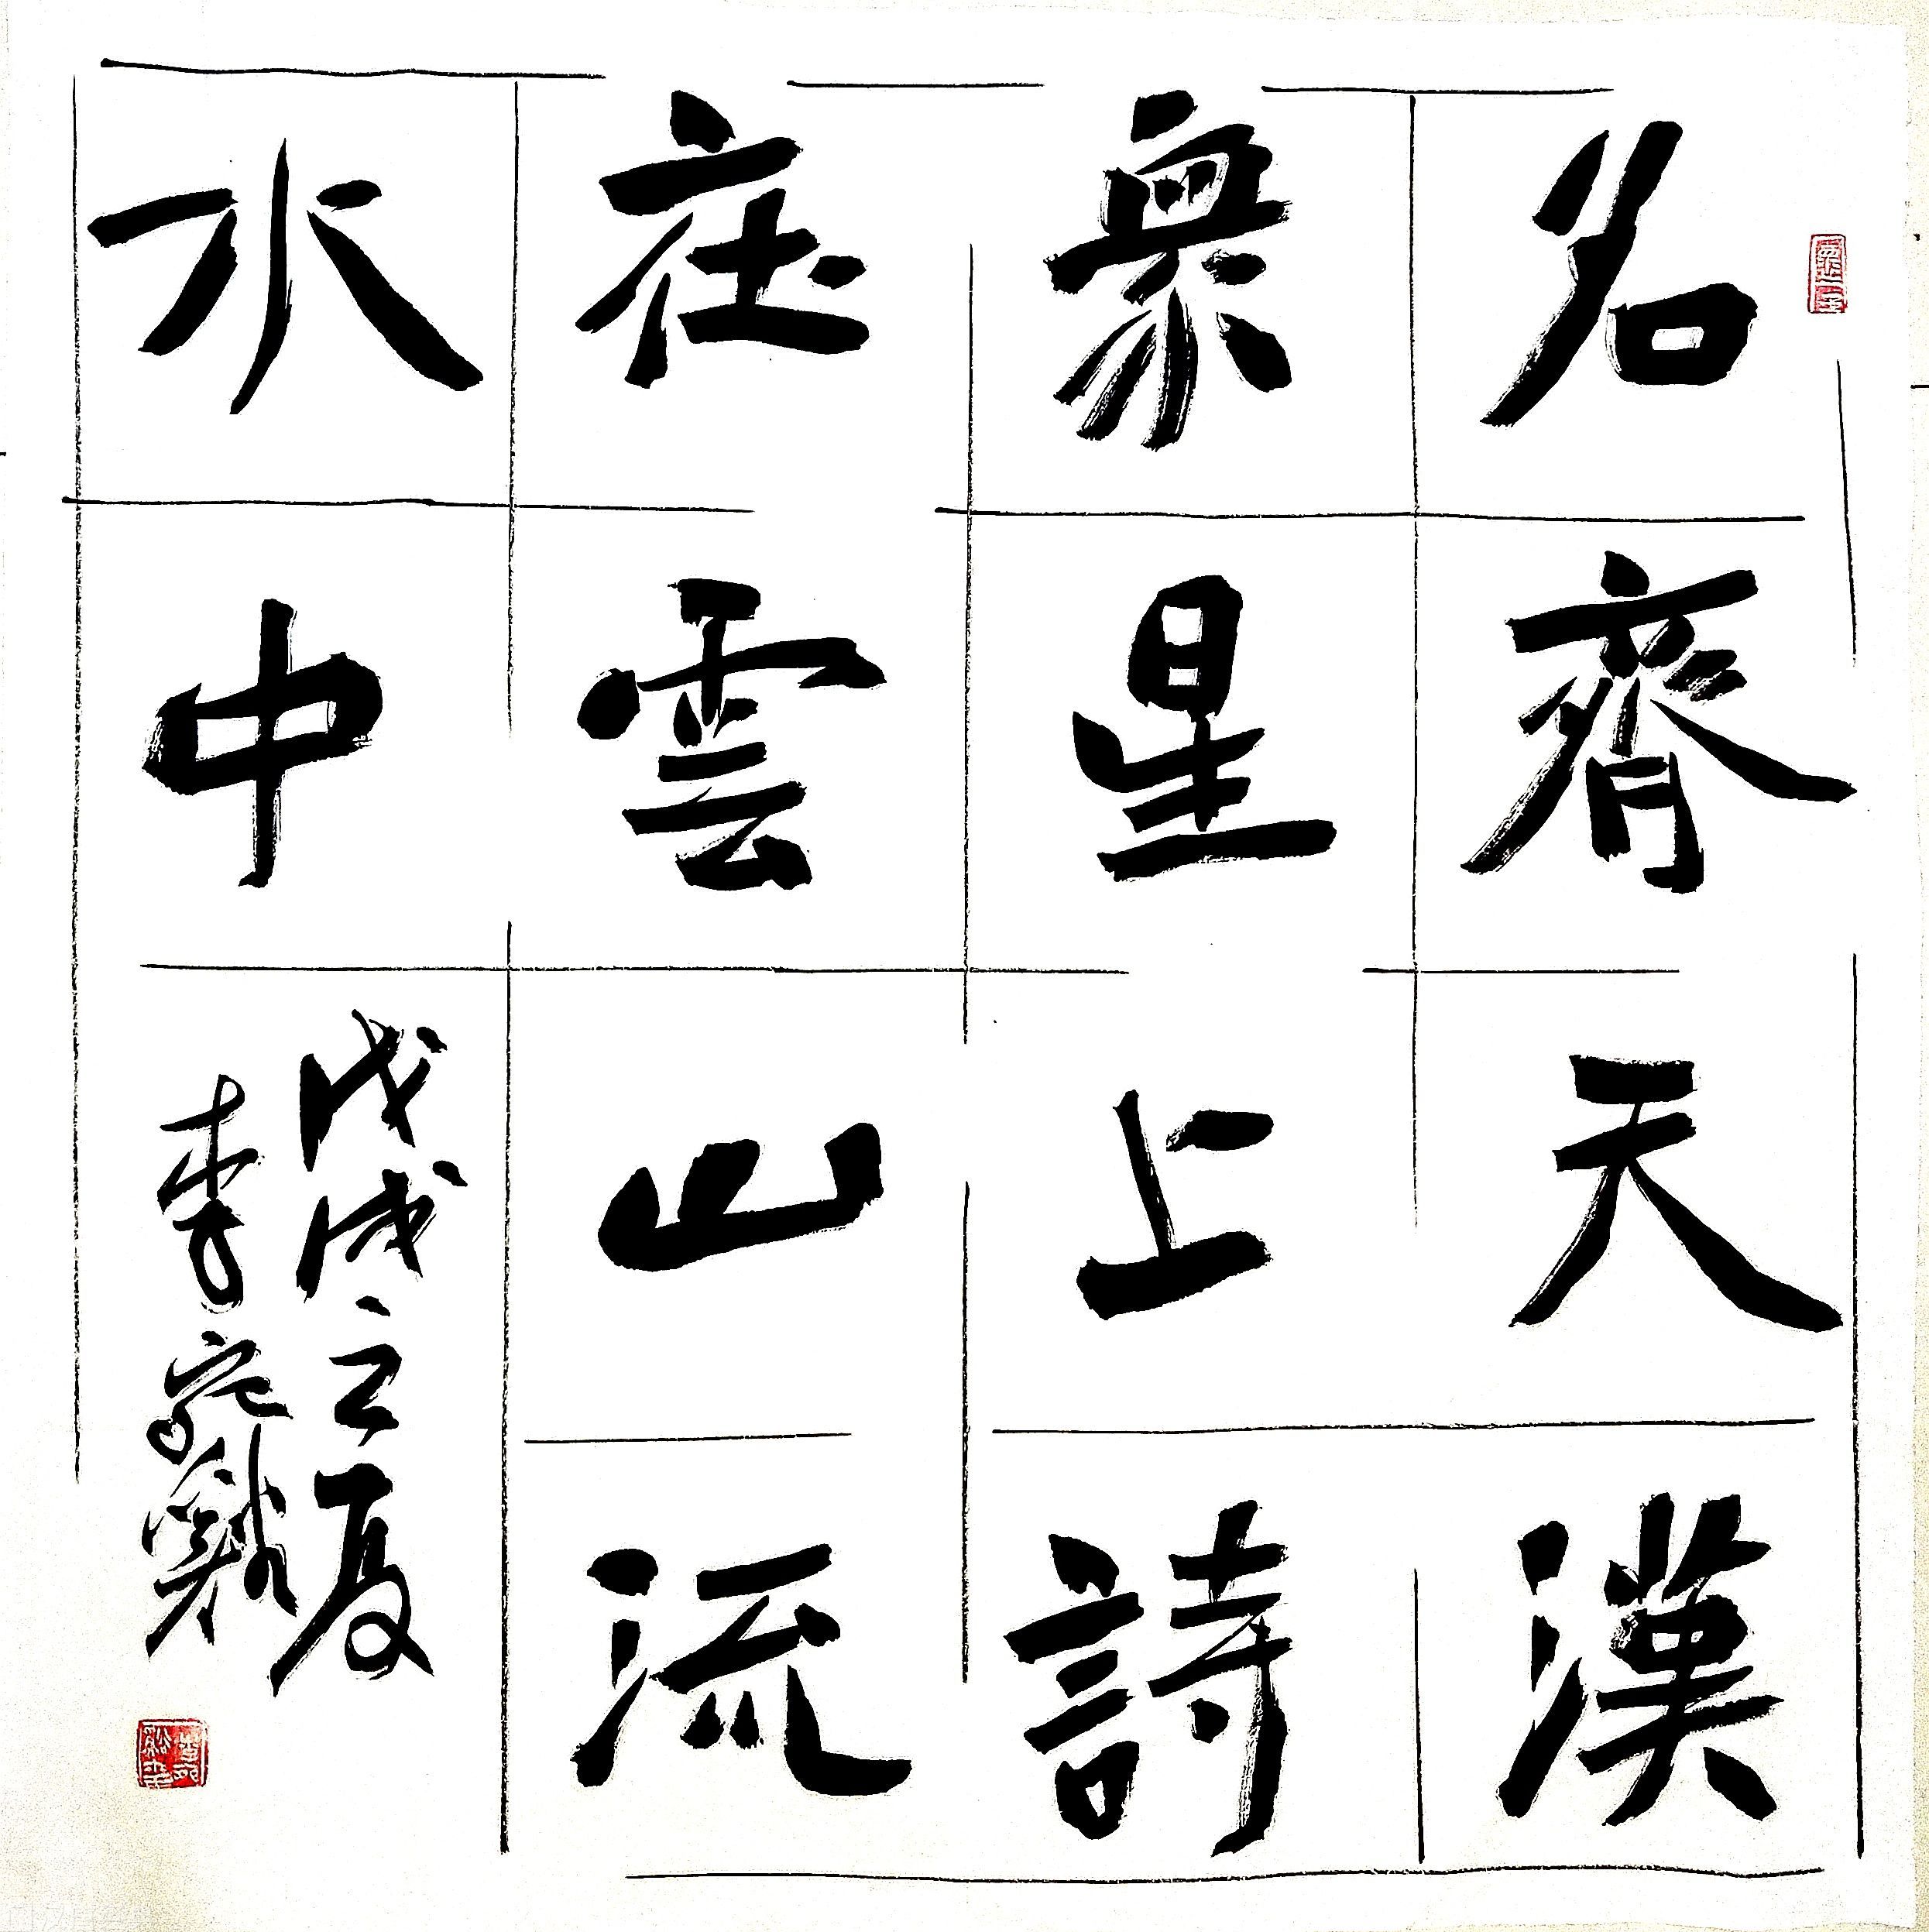 名齊天漢
眾星上詩
在雲山流
水中
戊戌之夏
李